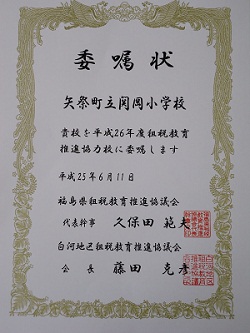 委嘱状
矢祭町立関岡小学校
貴校を平成26年度租税教育
推進協力校に委嘱します
平成25年6月11日
福島県租税教育推進協議会
代表幹事 久保田 範夫
白河地区租税教育推進協議会
会長 藤田 克彦